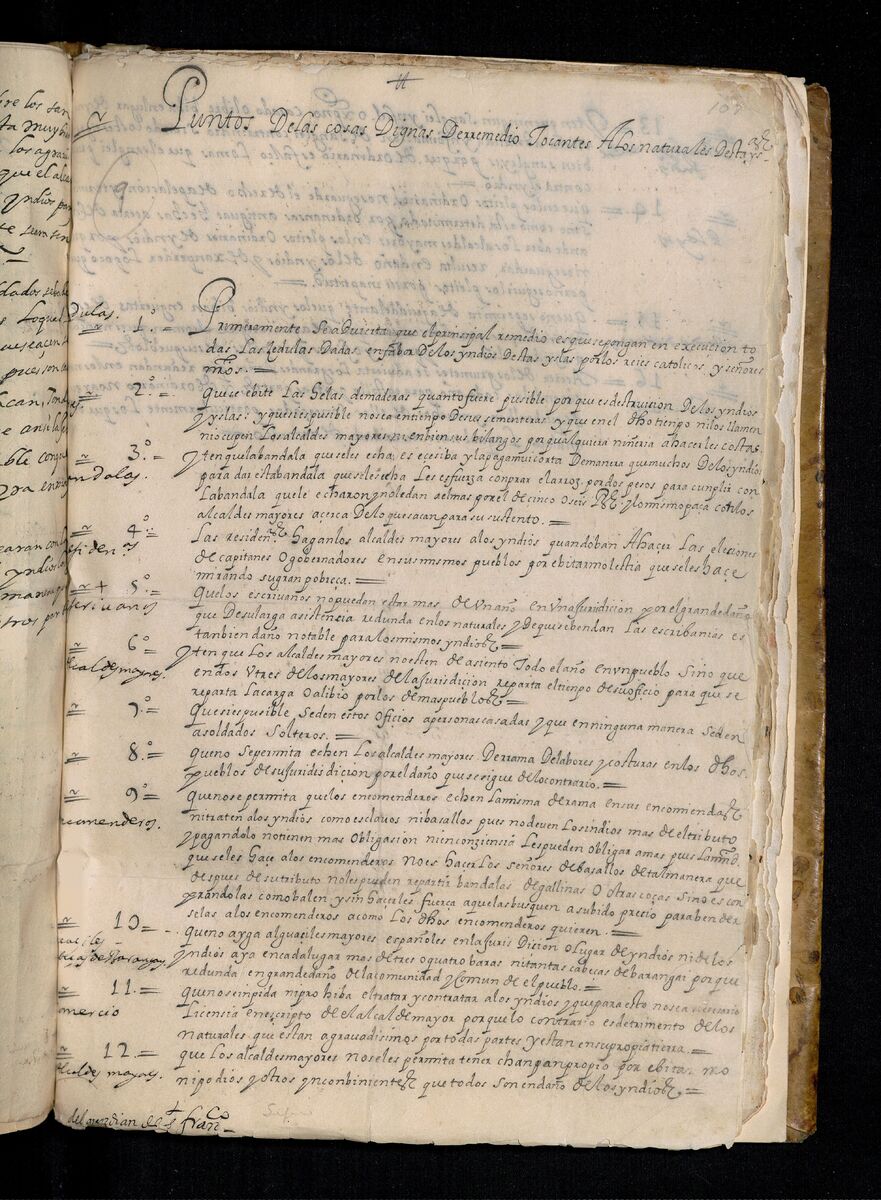 107
Puntos De las cosas Dignas De rremedio Tocantes A los naturales Desta ys
dulas.
1.º Primeramente Se aduierta que el principal remedio es que se pongan en execucion to
das Las Zedulas Dadas en fabor De los yndios Destas yslas por los reies catolicos y señores
nros.
2.º Que se ebite Las Helas de maderas quanto fuere pusible por que es destruision De los yndios
y yslas: y que si es pusible no sea en tienpo De sus sementeras y que en el dho tienpo ni los llamen
ni ocupen Los alcaldes mayores ni en bien sus bilangos por qualquiera nineria a hacerles costas
3.º yten que la bandala que se les echa, es ecesiba y la paga mui corta De manera que muchos De los yndios
ndalas. para dar esta bandala que se les echa Les es fuerza conprar el arroz por dos pesos para cunplir con
La bandala que le echaron y no le dan a el mas por el de cinco o seis Rs y lo mismo paça con los
alcaldes mayores acerca De lo que sacan para su sustento.
4.º Las residens Hagan los alcaldes mayores a los yndios quando ban A hacer Las elesiones
De capitanes o gobernadores en sus mismos pueblos por ebitar molestia que se les hace
mirando su gran pobreça.
5.º Que los escriuanos no puedan estar mas de un año en una Juridicion por el grande daño
scriuanos que De su larga asistencia redunda en los naturales y de que se bendan Las escribanias es
tanbien daño notable para los mismos yndios
6.º yten que Los alcaldes mayores no esten de asiento Todo el año en un pueblo Sino que
alcaldes mayres. en dos U tres de los mayores de la Jurisdicion reparta el tienpo de su oficio para que se
reparta La carga o alibio por los demas pueblos
7.º Que si es pusible Se den estos oficios a personas casadas y que en ninguna manera Se den
a soldados solteros.
8.º Que no se permita echen Los alcaldes mayores Derrama De labores y costuras en los dhos
pueblos de su Juridisdicion por el daño que se sigue de lo contrario.
9.º Que no se permita que los encomenderos echen La misma derama en sus encomiendas
comenderos. ni traten a los yndios como esclavos ni basallos pues no deven Los indios mas de el tributo
y pagandolo no tienen mas obligasion ni en conziensia Les pueden obligar a mas pues La mrd
que se les hace a los encomenderos no es hacerlos señores de basallos de tal manera que
despues de su tributo no les pueden repartir bandalas de gallinas o otras cosas Sino es con
prandolas como balen y sin hacerles fuerça a que las busquen a subido precio para bender
selas a los encomenderos a como Los dhos encomenderos quieren.
10 Que no ayga alguaciles mayores españoles en la Jurisdicion o lugar de yndios ni de los
yndios aya en cada lugar mas de tres o quatro baras ni tantas cabeças de barangai porque
redunda en grande daño de la comunidad y comun de el pueblo.
11. que no se inpida ni prohiba el tratar y contratar a los yndios y que para esto no sea necesario
omercio Licensia en escripto de el alcalde mayor porque lo contrario es detrimento de los
naturales que estan agravadisimos por todas partes y estan en su propia tierra.
12. que Los alcaldes mayores no se les permita tener chanpan propio por ebitar mo
alcaldes mayres. nipodios y otros ynconbinientes que todos son en daño de los yndios
del guardian de S. franco